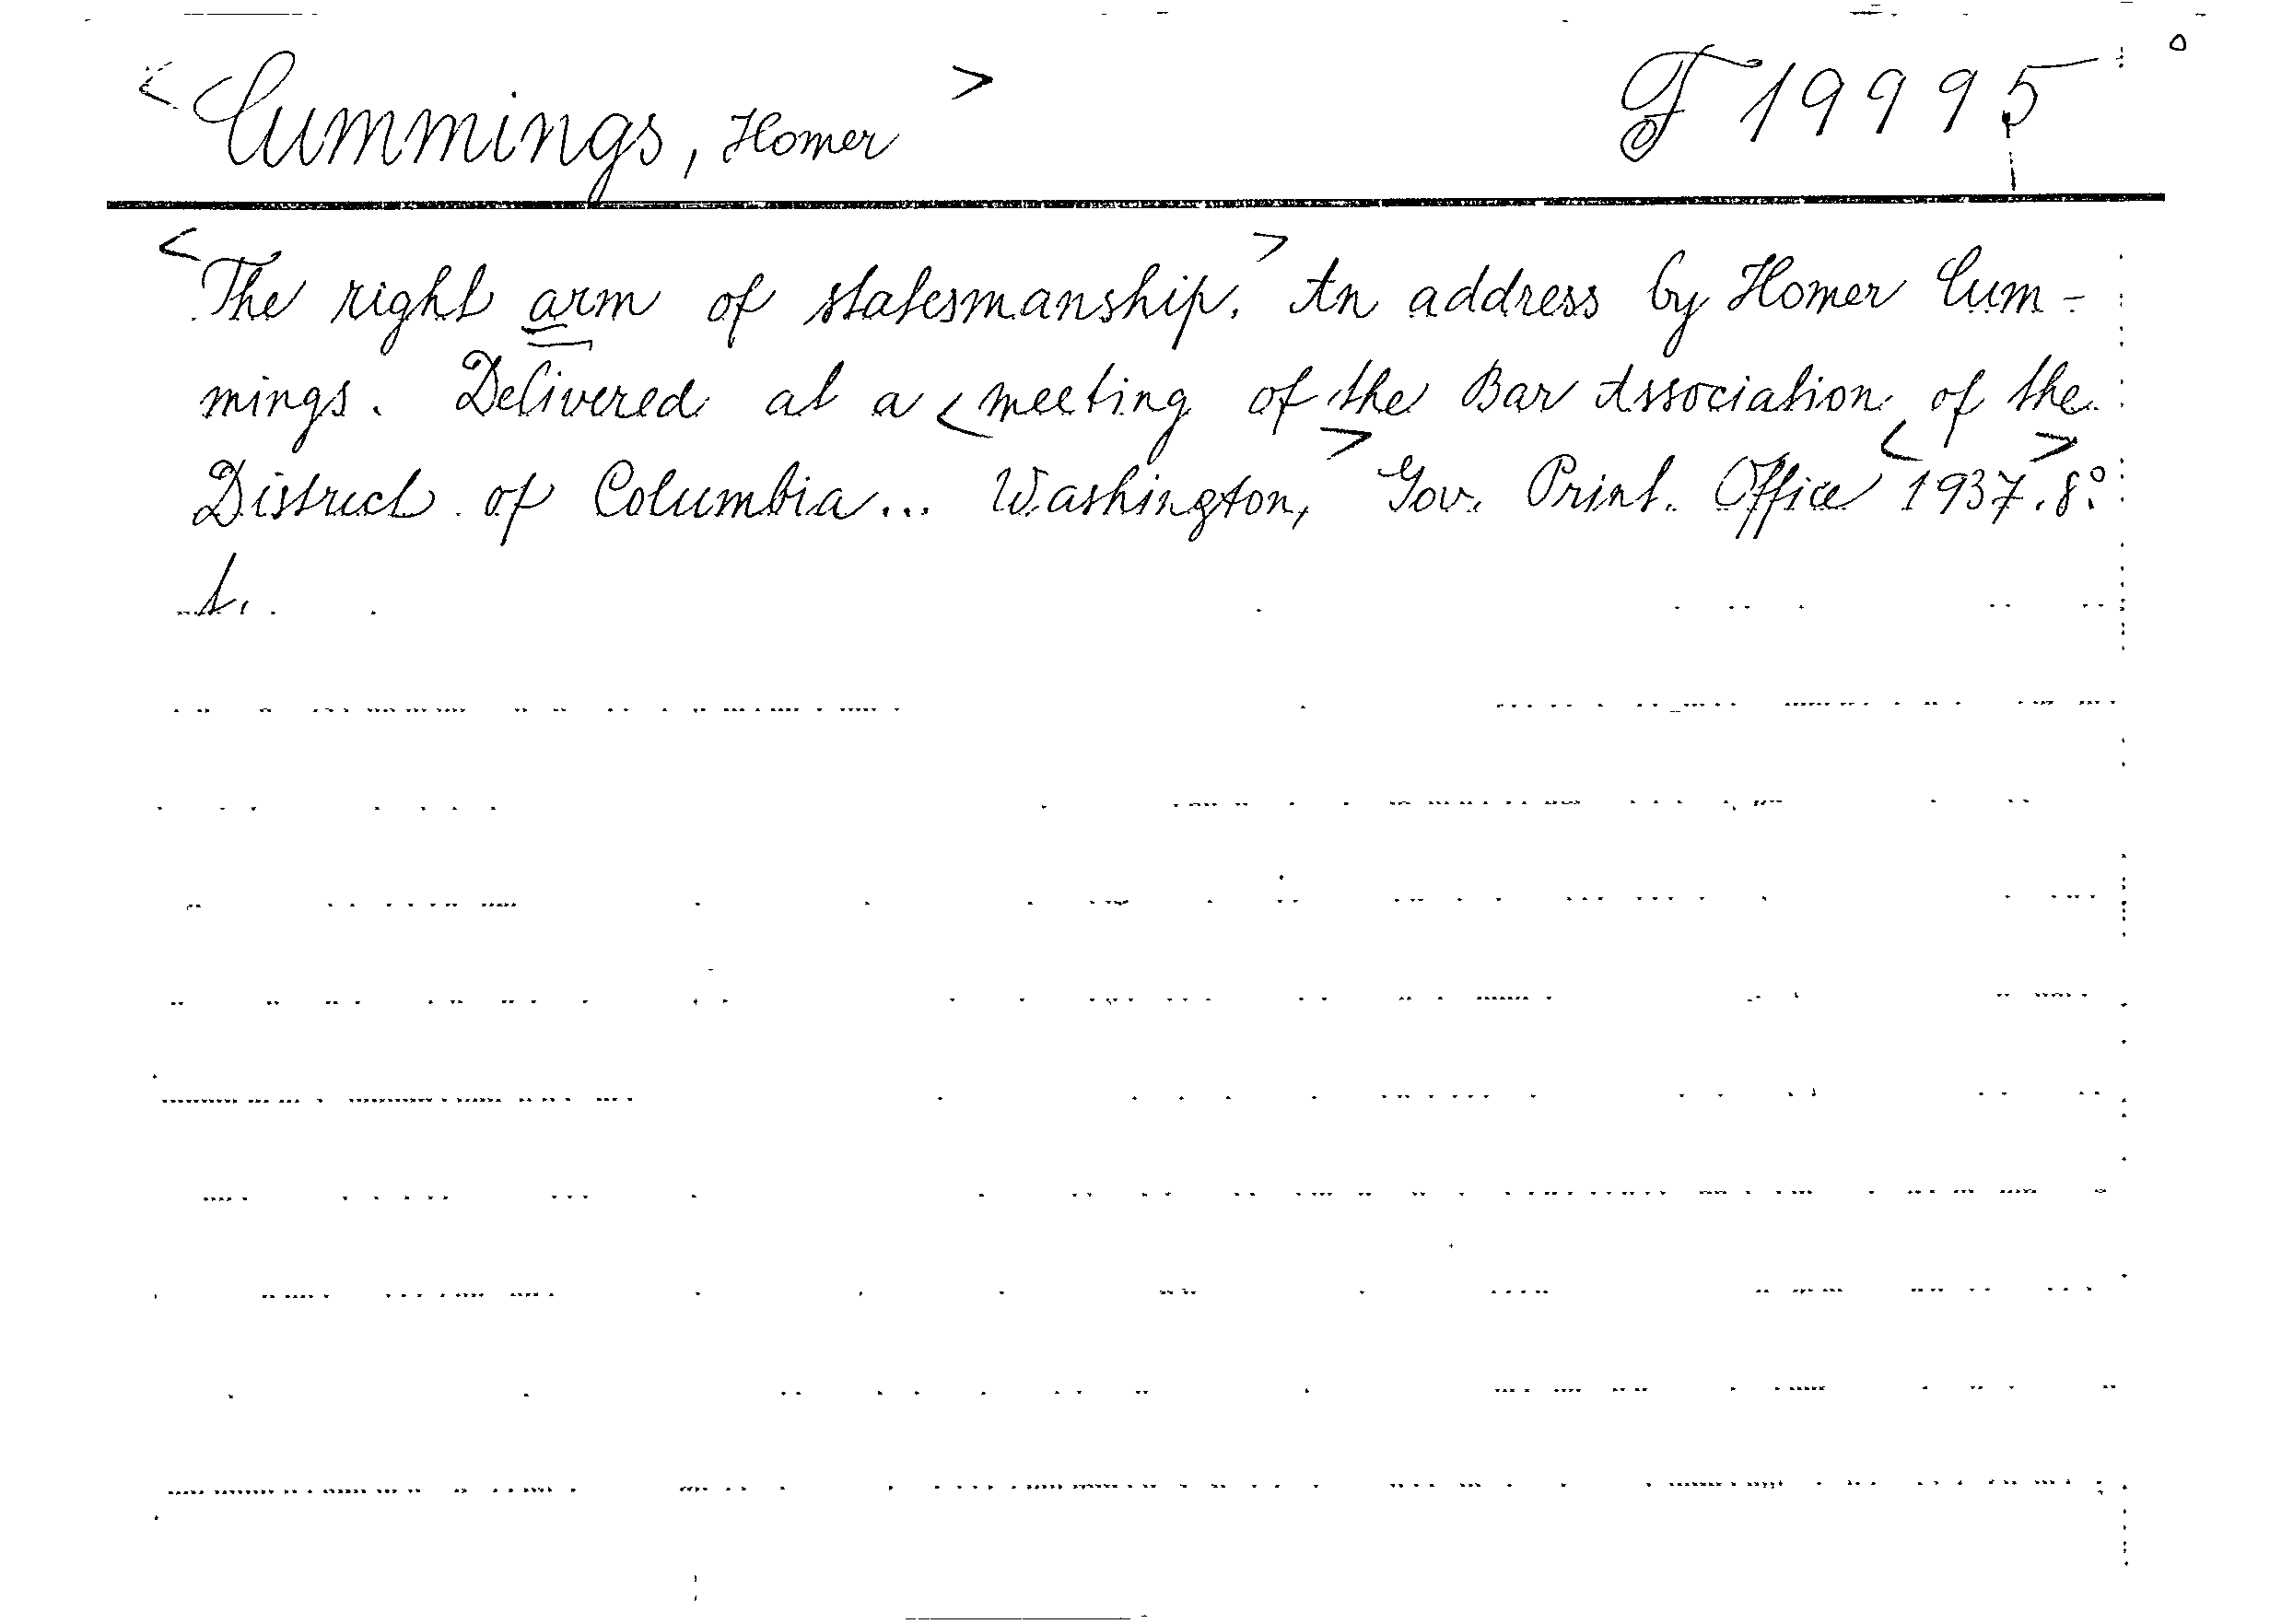 < Cummings, Homer > F 19995
< The right arm of statesmanship. > An address by Homer Cum-
mings. Delivered at a < meeting of the Bar Association of the
District of Columbia... Washington, > Gov. Print. Office < 1937. > 8°.